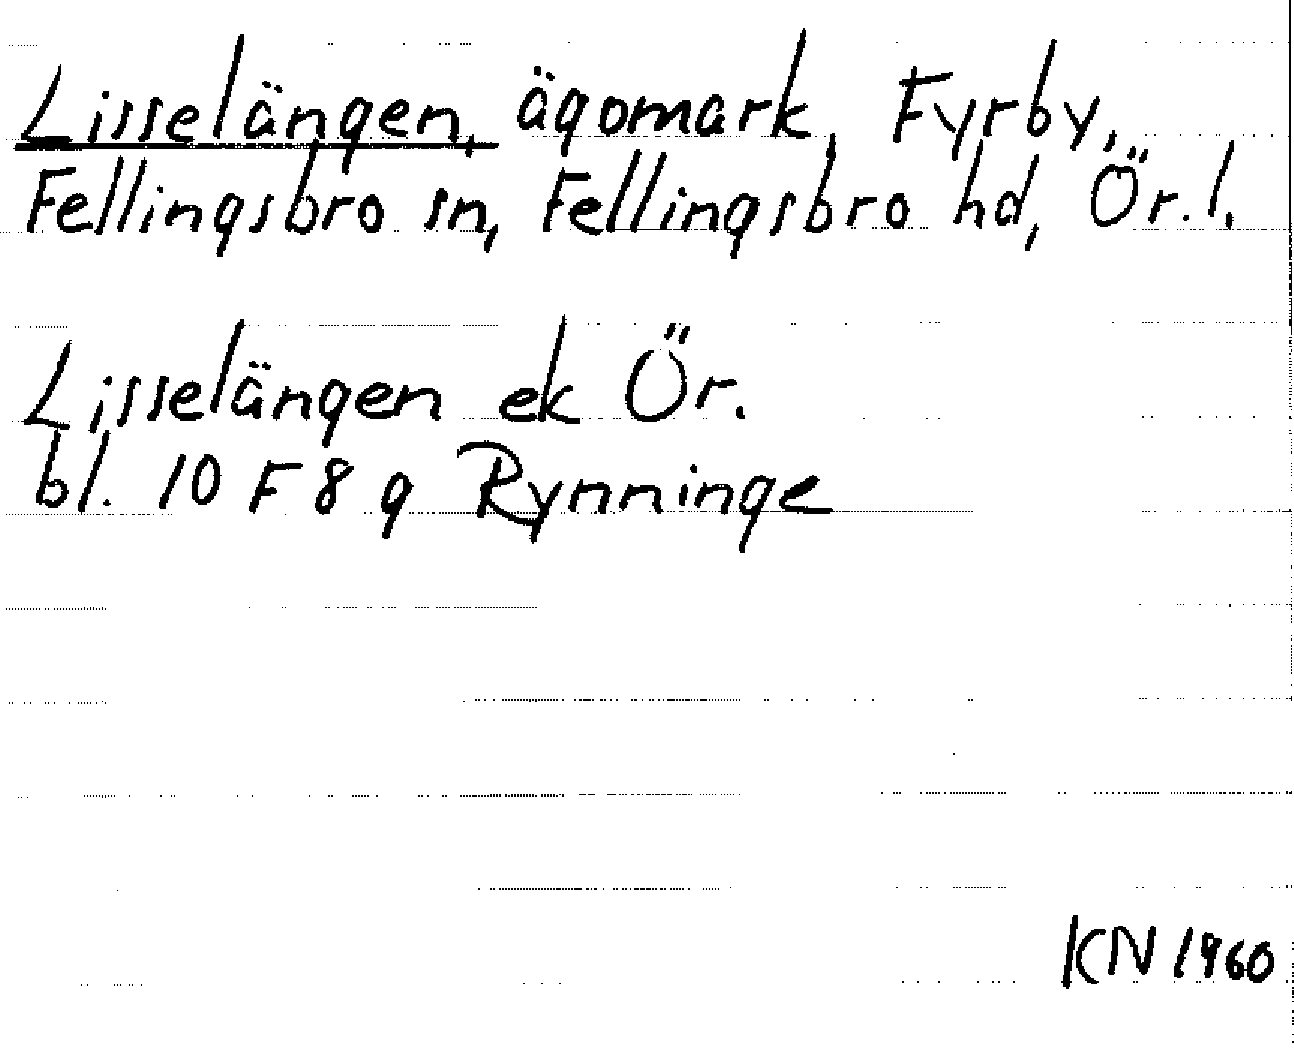 Lisselängen, ägomark, Fyrby,
Fellingsbro sn, Fellingsbro hd, Ör. l.
Lisselängen ek Ör.
bl. 10 F 8 g Rynninge
KN 1960